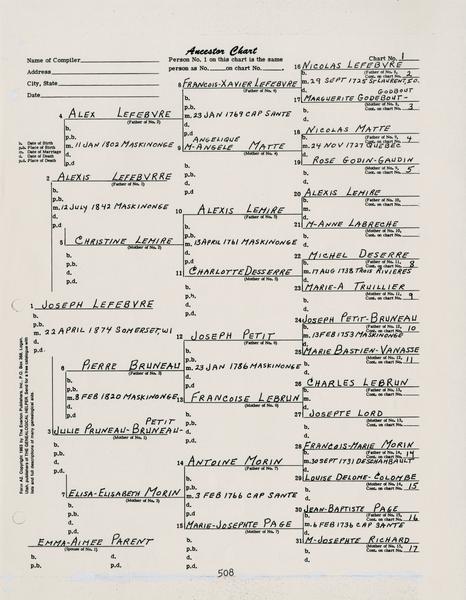 Ancestor Chart
Name of Compiler
Address
City, State
Date
Person No. 1 on this chart is the same
person as No. on chart No. .
Chart No. 1
b. Date of Birth
p.b. Place of Birth
m. Date of Marriage
d. Date of Death
p.d. Place of Death
1 JOSEPH LEFEBVRE
b.
p.b.
m. 22 APRIL 1874 SOMERSET, WI
d.
p.d.
EMMA-AIMEE PARENT
(Spouse of No. 1)
b. d.
p.b. p.d.
2 ALEXIS LEFEBVRRE
(Father of No. 1)
b.
p.b.
m. 12 JULY 1842 MASKINONGE
d.
p.d.
3 JULIE PRUNEAU-BRUNEAU-PETIT
(Mother of No. 1)
b.
p.b.
d.
p.d.
4 ALEX LEFEBVRE
(Father of No. 2)
b.
p.b.
m. 11 JAN 1802 MASKINONGE
d.
p.d.
5 CHRISTINE LEMIRE
(Mother of No. 2)
b.
p.b.
d.
p.d.
6 PIERRE BRUNEAU
(Father of No. 3)
b.
p.b.
m. 8 FEB 1820 MASKINONGE
d.
p.d.
7 ELISA-ELISABETH MORIN
(Mother of No. 3)
b.
p.b.
d.
p.d.
8 FRANCOIS-XAVIER LEFEBVRE
(Father of No. 4)
b.
p.b.
m. 23 JAN 1769 CAP SANTE
d.
p.d.
ANGELIQUE
9 M-ANGELE MATTE
(Mother of No. 4)
b.
p.b.
d.
p.d.
10 ALEXIS LEMIRE
(Father of No. 5)
b.
p.b.
m. 13 APRIL 1761 MASKINONGE
d.
p.d.
11 CHARLOTTE DESSERRE
(Mother of No. 5)
b.
p.b.
d.
p.d.
12 JOSEPH PETIT
(Father of No. 6)
b.
p.b.
m. 23 JAN 1786 MASKINONGE
d.
p.d.
13 FRANCOISE LEBRUN
(Mother of No. 6)
b.
p.b.
d.
p.d.
14 ANTOINE MORIN
(Father of No. 7)
b.
p.b.
m. 3 FEB 1766 CAP SANTE
d.
p.d.
15 MARIE-JOSEPHTE PAGE
(Mother of No. 7)
b.
p.b.
d.
p.d.
16 NICOLAS LEFEBVRE
(Father of No. 8, Cont. on chart No. 2)
b.
m. 29 SEPT 1725 ST LAURENT, I.O.
d.
GODBOUT
17 MARGUERITE GODEBOUT-
(Mother of No. 8, Cont. on chart No. 3)
b.
d.
18 NICOLAS MATTE
(Father of No. 9, Cont. on chart No. 4)
b.
m. 24 NOV 1727 QUEBEC
d.
19 ROSE GODIN-GAUDIN
(Mother of No. 9, Cont. on chart No. 5)
b.
d.
20 ALEXIS LEMIRE
(Father of No. 10, Cont. on chart No.
b.
m.
d.
21 M-ANNE LABRECHE
(Mother of No. 10, Cont. on chart No.
b.
d.
22 MICHEL DESERRE
(Father of No. 11, Cont. on chart No. 8
b.
m. 17 AUG 1738 TROIS RIVIERES
d.
23 MARIE-A TRUILLIER
(Mother of No. 11, Cont. on chart No. 9
b.
d.
24 JOSEPH PETIT-BRUNEAU
(Father of No. 12, Cont. on chart No. 10
b.
m. 13 FEB 1753 MASKINONGE
d.
25 MARIE BASTIEN-VANASSE
(Mother of No. 12, Cont. on chart No. 11
b.
d.
26 CHARLES LEBRUN
(Father of No. 13, Cont. on chart No.
b.
m.
d.
27 JOSEPTE LORD
(Mother of No. 13, Cont. on chart No.
b.
d.
28 FRANCOIS-MARIE MORIN
(Father of No. 14, Cont. on chart No. 14
b.
m. 30 SEPT 1731 DESCHAMBAULT
d.
29 LOUISE DELOME-COLOMBE
(Mother of No. 14, Cont. on chart No. 15
b.
d.
30 JEAN-BAPTISTE PAGE
(Father of No. 15, Cont. on chart No. 16
b.
m. 6 FEB 1736 CAP SANTE
d.
31 M-JOSEPHTE RICHARD
(Mother of No. 15, Cont. on chart No. 17
b.
d.
508